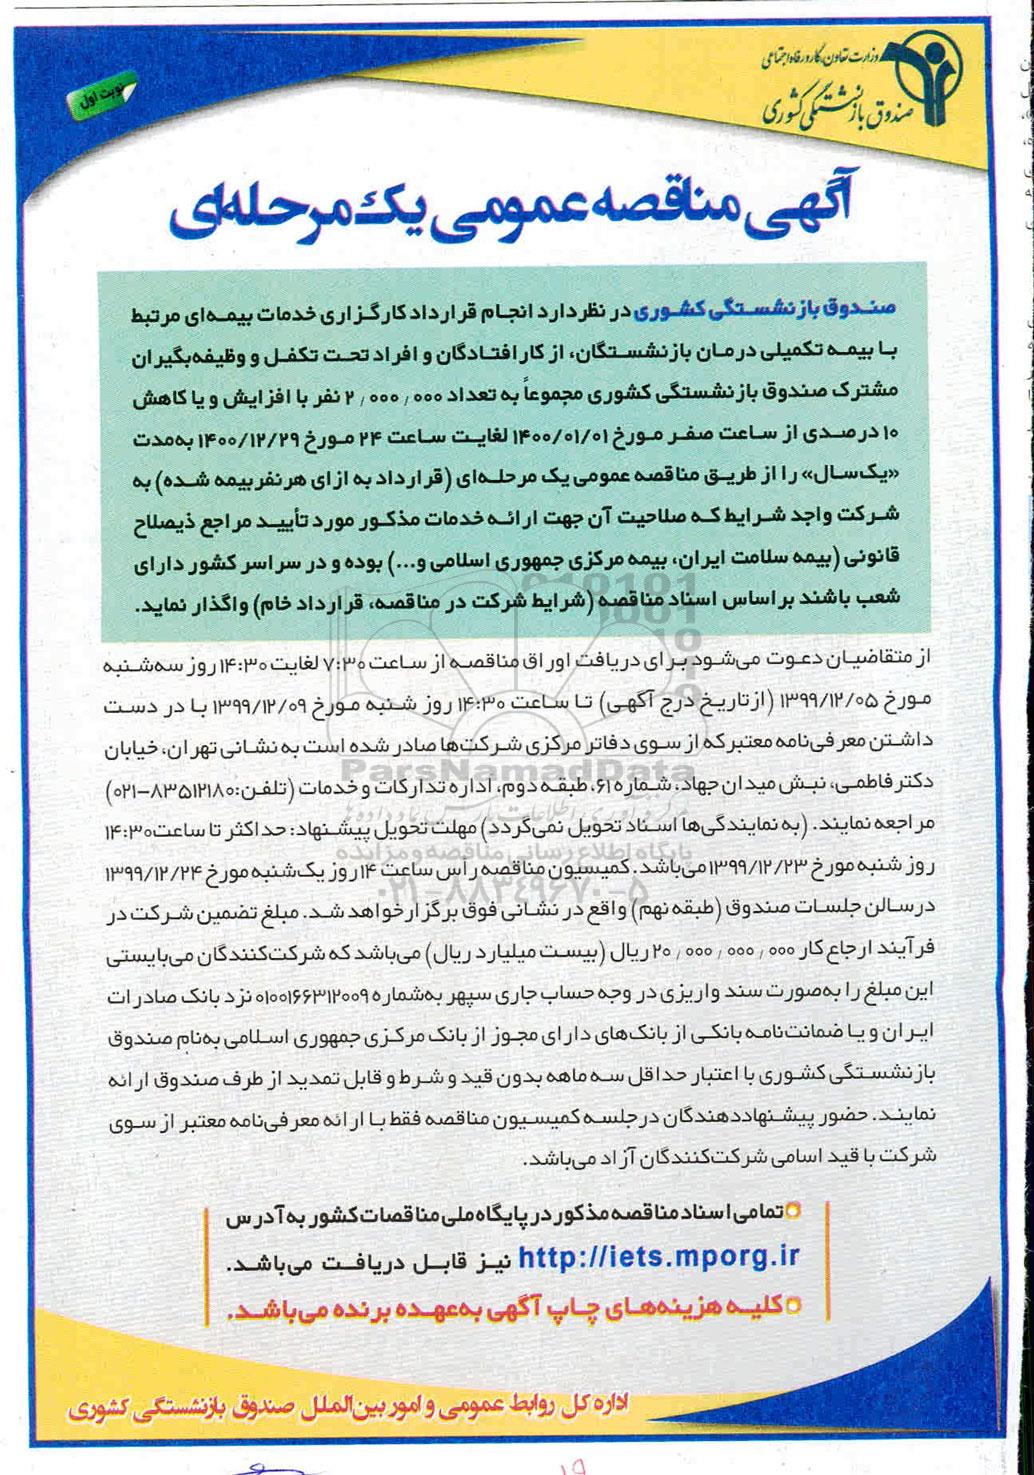 وزارت تعاون، کار و رفاه اجتماعی
صندوق بازنشستگی کشوری
نوبت اول
آگهی مناقصه عمومی یک مرحله‌ای
صندوق بازنشستگی کشوری در نظر دارد انجام قرارداد کارگزاری خدمات بیمه‌ای مرتبط
با بیمه تکمیلی درمان بازنشستگان، از کارافتادگان و افراد تحت تکفل و وظیفه‌بگیران
مشترک صندوق بازنشستگی کشوری مجموعاً به تعداد ۲٫۰۰۰٫۰۰۰ نفر با افزایش و یا کاهش
۱۰ درصدی از ساعت صفر مورخ ۱۴۰۰/۰۱/۰۱ لغایت ساعت ۲۴ مورخ ۱۴۰۰/۱۲/۲۹ به‌مدت
«یک‌سال» را از طریق مناقصه عمومی یک مرحله‌ای (قرارداد به ازای هر نفر بیمه شده) به
شرکت واجد شرایط که صلاحیت آن جهت ارائه خدمات مذکور مورد تأیید مراجع ذیصلاح
قانونی (بیمه سلامت ایران، بیمه مرکزی جمهوری اسلامی و...) بوده و در سراسر کشور دارای
شعب باشند براساس اسناد مناقصه (شرایط شرکت در مناقصه، قرارداد خام) واگذار نماید.
از متقاضیان دعوت می‌شود برای دریافت اوراق مناقصه از ساعت ۷:۳۰ لغایت ۱۴:۳۰ روز سه‌شنبه
مورخ ۱۳۹۹/۱۲/۰۵ (از تاریخ درج آگهی) تا ساعت ۱۴:۳۰ روز شنبه مورخ ۱۳۹۹/۱۲/۰۹ با در دست
داشتن معرفی‌نامه معتبر که از سوی دفاتر مرکزی شرکت‌ها صادر شده است به نشانی تهران، خیابان
دکتر فاطمی، نبش میدان جهاد، شماره ۶۱، طبقه دوم، اداره تدارکات و خدمات (تلفن: ۸۳۵۱۲۱۸۰-۰۲۱)
مراجعه نمایند. (به نمایندگی‌ها اسناد تحویل نمی‌گردد) مهلت تحویل پیشنهاد: حداکثر تا ساعت ۱۴:۳۰
روز شنبه مورخ ۱۳۹۹/۱۲/۲۳ می‌باشد. کمیسیون مناقصه رأس ساعت ۱۴ روز یک‌شنبه مورخ ۱۳۹۹/۱۲/۲۴
در سالن جلسات صندوق (طبقه نهم) واقع در نشانی فوق برگزار خواهد شد. مبلغ تضمین شرکت در
فرآیند ارجاع کار ۲۰٫۰۰۰٫۰۰۰٫۰۰۰ ریال (بیست میلیارد ریال) می‌باشد که شرکت‌کنندگان می‌بایستی
این مبلغ را به‌صورت سند واریزی در وجه حساب جاری سپهر به‌شماره ۰۱۰۰۱۶۶۳۱۲۰۰۹ نزد بانک صادرات
ایران و یا ضمانت‌نامه بانکی از بانک‌های دارای مجوز از بانک مرکزی جمهوری اسلامی به‌نام صندوق
بازنشستگی کشوری با اعتبار حداقل سه ماهه بدون قید و شرط و قابل تمدید از طرف صندوق ارائه
نمایند. حضور پیشنهاددهندگان در جلسه کمیسیون مناقصه فقط با ارائه معرفی‌نامه معتبر از سوی
شرکت با قید اسامی شرکت‌کنندگان آزاد می‌باشد.
تمامی اسناد مناقصه مذکور در پایگاه ملی مناقصات کشور به آدرس
http://iets.mporg.ir نیز قابل دریافت می‌باشد.
کلیه هزینه‌های چاپ آگهی به‌عهده برنده می‌باشد.
اداره کل روابط عمومی و امور بین‌الملل صندوق بازنشستگی کشوری
ParsNamadData
پایگاه اطلاع رسانی مناقصه و مزایده
۰۲۱-۸۸۳۴۹۶۷۰-۵
۱۹